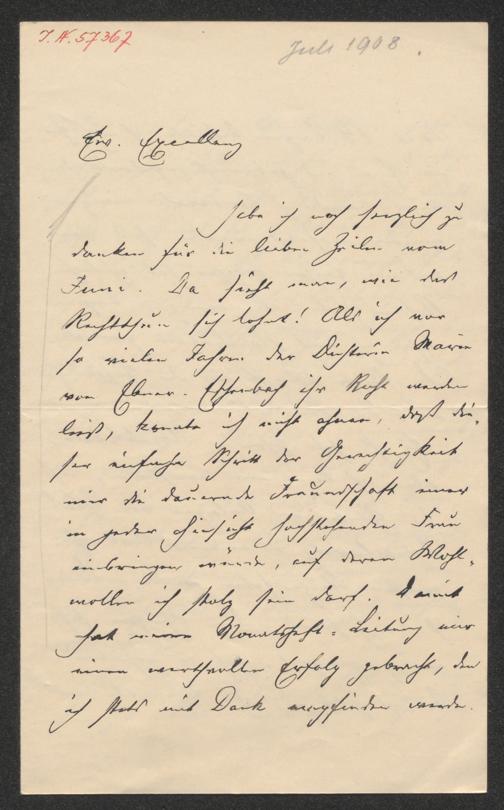 I. N. 57367
Juli 1908.
Ew. Excellenz
habe ich noch herzlich zu
danken für die lieben Zeilen vom
Juni. Da sieht man, wie das
Rechtthun sich lohnt! Als ich vor
so vielen Jahren der Dichterin Marie
von Ebner-Eschenbach ihr Recht werden
ließ, konnte ich nicht ahnen, daß die-
ser einfache Schritt der Gerechtigkeit
mir die dauernde Freundschaft einer
in jeder Hinsicht hochstehenden Frau
einbringen würde, auf deren Wohl-
wollen ich stolz sein darf. Damit
hat meine Monatsheft-Leitung mir
einen werthvollen Erfolg gebracht, den
ich stets mit Dank empfinden werde.